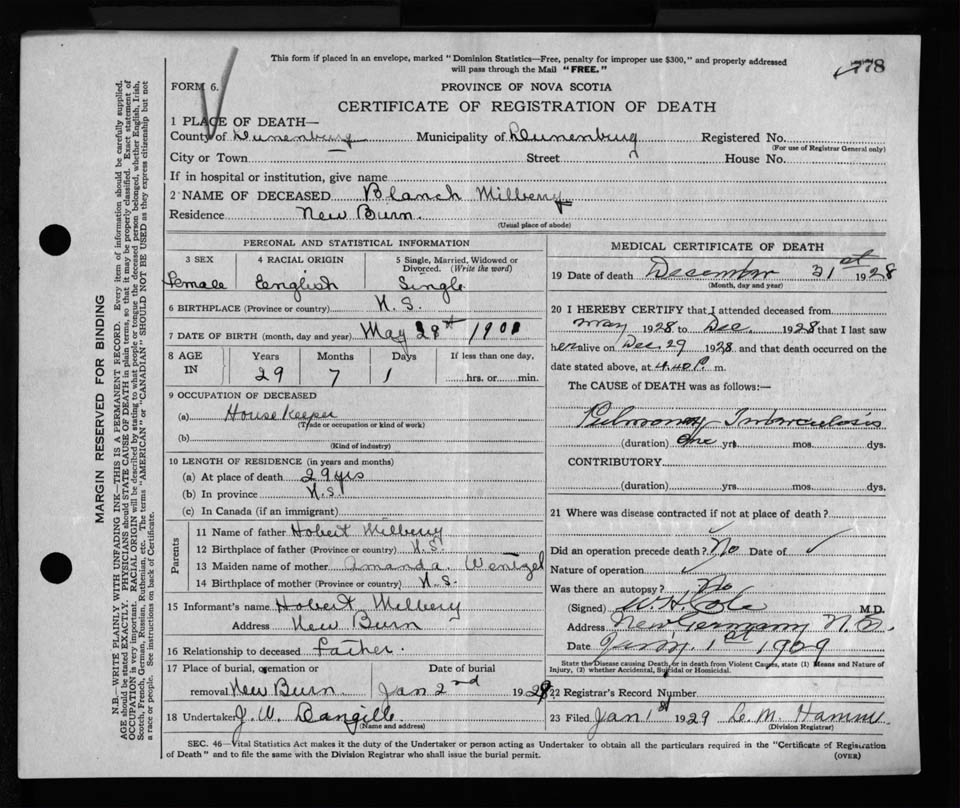 This form if placed in an envelope, marked "Dominion Statistics—Free, penalty for improper use $300," and properly addressed
will pass through the Mail "FREE."
778
FORM 6.
PROVINCE OF NOVA SCOTIA
CERTIFICATE OF REGISTRATION OF DEATH
1 PLACE OF DEATH—
County of Lunenburg Municipality of Lunenburg Registered No.
(For use of Registrar General only)
City or Town Street House No.
If in hospital or institution, give name
2 NAME OF DECEASED Blanch Milbery
Residence New Burn.
(Usual place of abode)
PERSONAL AND STATISTICAL INFORMATION
3 SEX 4 RACIAL ORIGIN 5 Single, Married, Widowed or Divorced. (Write the word)
Female English Single
6 BIRTHPLACE (Province or country) N. S.
7 DATE OF BIRTH (month, day and year) May
8 AGE IN Years Months Days If less than one day,
29 7 1 hrs. or min.
9 OCCUPATION OF DECEASED
(a) House Keeper
(Trade or occupation or kind of work)
(b)
(Kind of industry)
10 LENGTH OF RESIDENCE (in years and months)
(a) At place of death 29 yrs
(b) In province N.S.
(c) In Canada (if an immigrant)
Parents
11 Name of father Hobert Milbery
12 Birthplace of father (Province or country) N.S.
13 Maiden name of mother Amanda Wentzel
14 Birthplace of mother (Province or country) N.S.
15 Informant's name Hobert Milbery
Address New Burn
16 Relationship to deceased Father.
17 Place of burial, cremation or removal New Burn. Date of burial Jan 2nd 1929
18 Undertaker J. W.
(Name and address)
MEDICAL CERTIFICATE OF DEATH
19 Date of death December 31st 1928
(Month, day and year)
20 I HEREBY CERTIFY that I attended deceased from
May 1928 to Dec. 1928 that I last saw
her alive on Dec. 29 1928 and that death occurred on the
date stated above, at 4.40 P. m.
The CAUSE of DEATH was as follows:—
Pulmonary Tuberculosis
(duration) one yrs. mos. dys.
CONTRIBUTORY
(duration) yrs. mos. dys.
21 Where was disease contracted if not at place of death?
Did an operation precede death? No Date of
Nature of operation
Was there an autopsy? No
(Signed) W. H. Cole M.D.
Address New Germany N.S.
Date Jan'y. 1st 1929
State the Disease causing Death, or in death from Violent Causes, state (1) Means and Nature of
Injury, (2) whether Accidental, Suicidal or Homicidal.
22 Registrar's Record Number
23 Filed Jan 1st 1929 C. M.
(Division Registrar)
SEC. 46—Vital Statistics Act makes it the duty of the Undertaker or person acting as Undertaker to obtain all the particulars required in the "Certificate of Registration
of Death" and to file the same with the Division Registrar who shall issue the burial permit. (OVER)
MARGIN RESERVED FOR BINDING
N.B.—WRITE PLAINLY WITH UNFADING INK—THIS IS A PERMANENT RECORD. Every item of information should be carefully supplied.
AGE should be stated EXACTLY. PHYSICIANS should STATE CAUSE OF DEATH in plain terms, so that it may be properly classified. Exact statement of
OCCUPATION is very important. RACIAL ORIGIN will be described by stating to what people or tongue the deceased person belonged, whether English, Irish,
Scotch, French, German, Russian, Ruthenian, etc. The terms "AMERICAN" or "CANADIAN" SHOULD NOT BE USED as they express citizenship but not
a race or people. See instructions on back of Certificate.